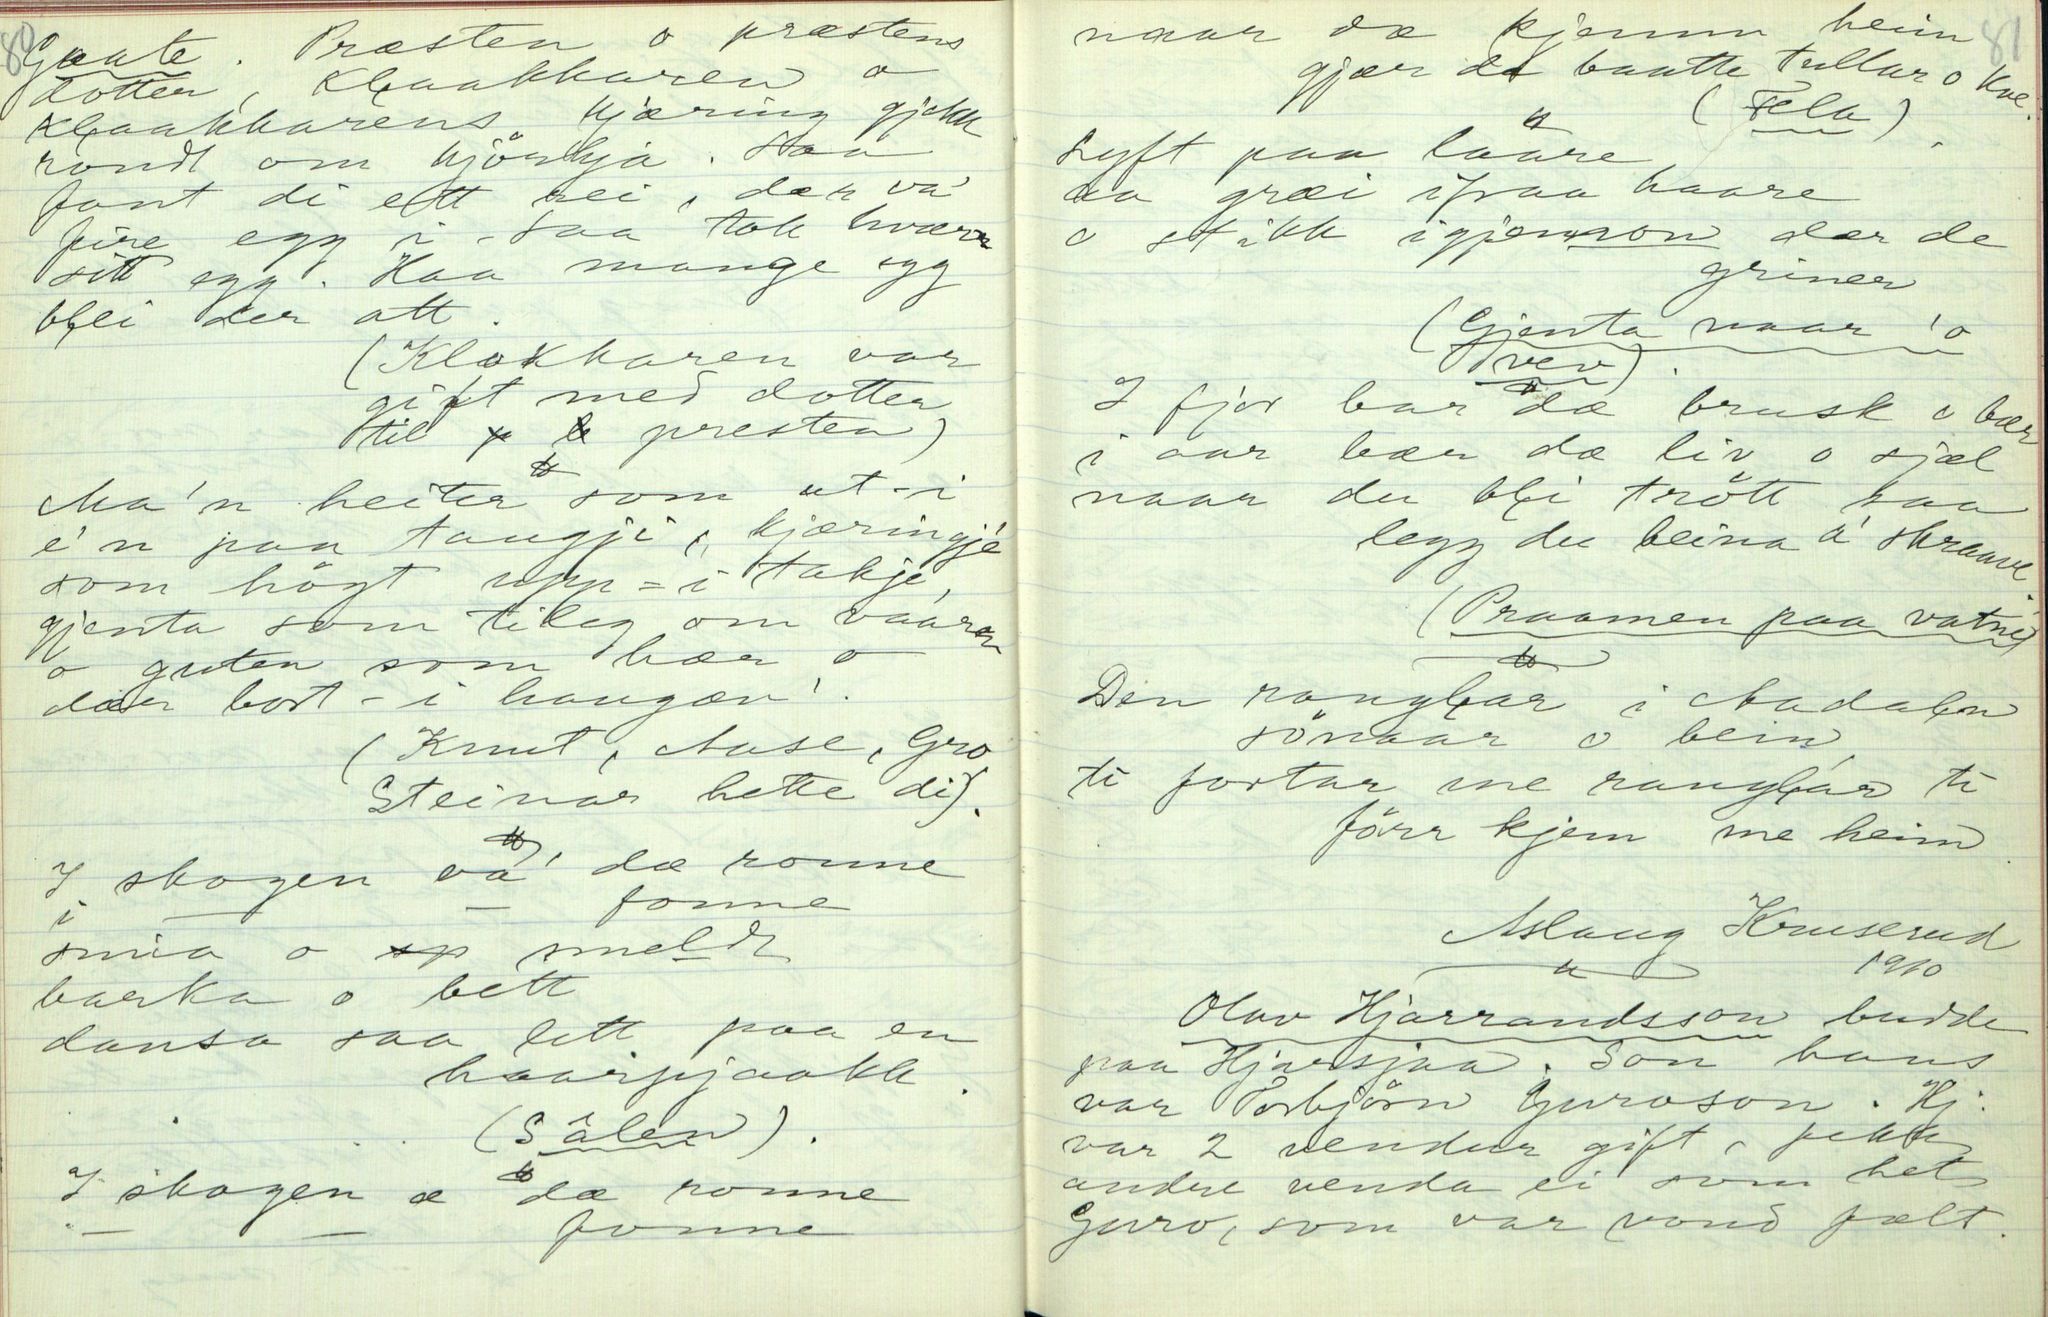 80
Gaate. Præsten o præstens
dotter, Klaakkaren o
Klaakkarens kjæring gjekk
rondt om kjörkja. Saa
fant di ett rei, dær va'
fire egg i - saa tok hværr
sitt egg. Haa mange egg
blei der att.
(Klokkaren var
gift med dotter
til presten)
Ma'n heiter som ut-i
e'n paa taugji, kjæringje
som högt upp-i takje,
gjenta som tileg om vaaren
o guten som hær o
dær bort-i haugæn'.
(Knut, Aase, Gro,
Steinar hette di).
I skogen va' dæ ronne
i — — fonne
smia o smeldt
barka o bett
dansa saa lett paa en
haarpjaakk.
(Sålen).
I skogen æ dæ ronne
— — fonne
81
naar dæ kjemm heim
gjær dæ baatte tullar o kve.
(Fela).
Lyft paa laare,
aa græi ifraa haare
o stikk igjennon dær de
griner
(Gjenta naar 'o
vev).
I fjor bar dæ brusk o bær
i aar bær dæ liv o sjæl
naar du bli trött saa
legg du beina å' skraave.
(Praamen paa vatne)
Den ranglar i Aadalen
sönaar o bein
ti fortar me ranglar ti
förr kjem me heim
Aslaug Kruserud
1910
Olav Hjarrandsson budde
paa Hjarsjaa. Son hans
var Torbjörn Guroson. Hj.
var 2 vendur gift, fekk
andre venda ei som het
Guro, som var vond fælt.